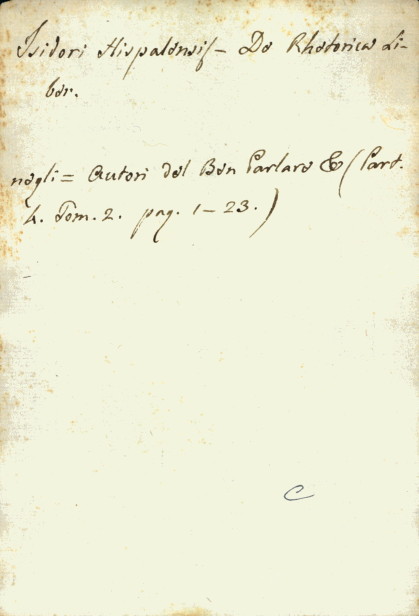 Isidori Hispalensis - De Rhetorica Li-
ber.
negli = Autori del Ben Parlare & (Part.
4. Tom. 2. pag. 1 - 23.)
C